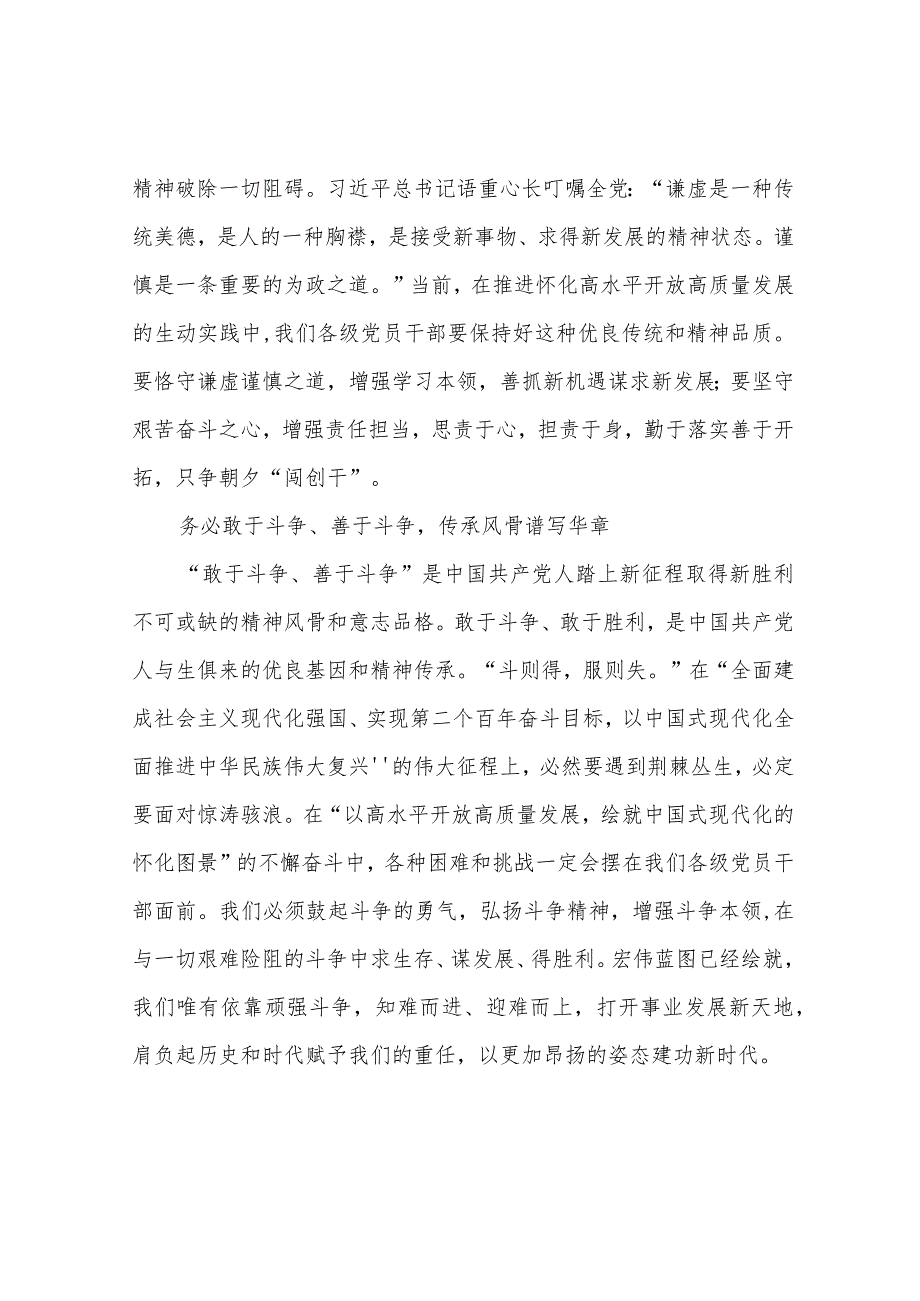 精神破除一切阻碍。习近平总书记语重心长叮嘱全党：“谦虚是一种传
统美德，是人的一种胸襟，是接受新事物、求得新发展的精神状态。谨
慎是一条重要的为政之道。”当前，在推进怀化高水平开放高质量发展
的生动实践中,我们各级党员干部要保持好这种优良传统和精神品质。
要恪守谦虚谨慎之道，增强学习本领，善抓新机遇谋求新发展；要坚守
艰苦奋斗之心，增强责任担当，思责于心，担责于身，勤于落实善于开
拓，只争朝夕“闯创干”。
务必敢于斗争、善于斗争，传承风骨谱写华章
“敢于斗争、善于斗争”是中国共产党人踏上新征程取得新胜利
不可或缺的精神风骨和意志品格。敢于斗争、敢于胜利，是中国共产党
人与生俱来的优良基因和精神传承。“斗则得，服则失。”在“全面建
成社会主义现代化强国、实现第二个百年奋斗目标，以中国式现代化全
面推进中华民族伟大复兴''的伟大征程上，必然要遇到荆棘丛生，必定
要面对惊涛骇浪。在“以高水平开放高质量发展，绘就中国式现代化的
怀化图景”的不懈奋斗中，各种困难和挑战一定会摆在我们各级党员干
部面前。我们必须鼓起斗争的勇气，弘扬斗争精神，增强斗争本领,在
与一切艰难险阻的斗争中求生存、谋发展、得胜利。宏伟蓝图已经绘就，
我们唯有依靠顽强斗争，知难而进、迎难而上，打开事业发展新天地，
肩负起历史和时代赋予我们的重任，以更加昂扬的姿态建功新时代。